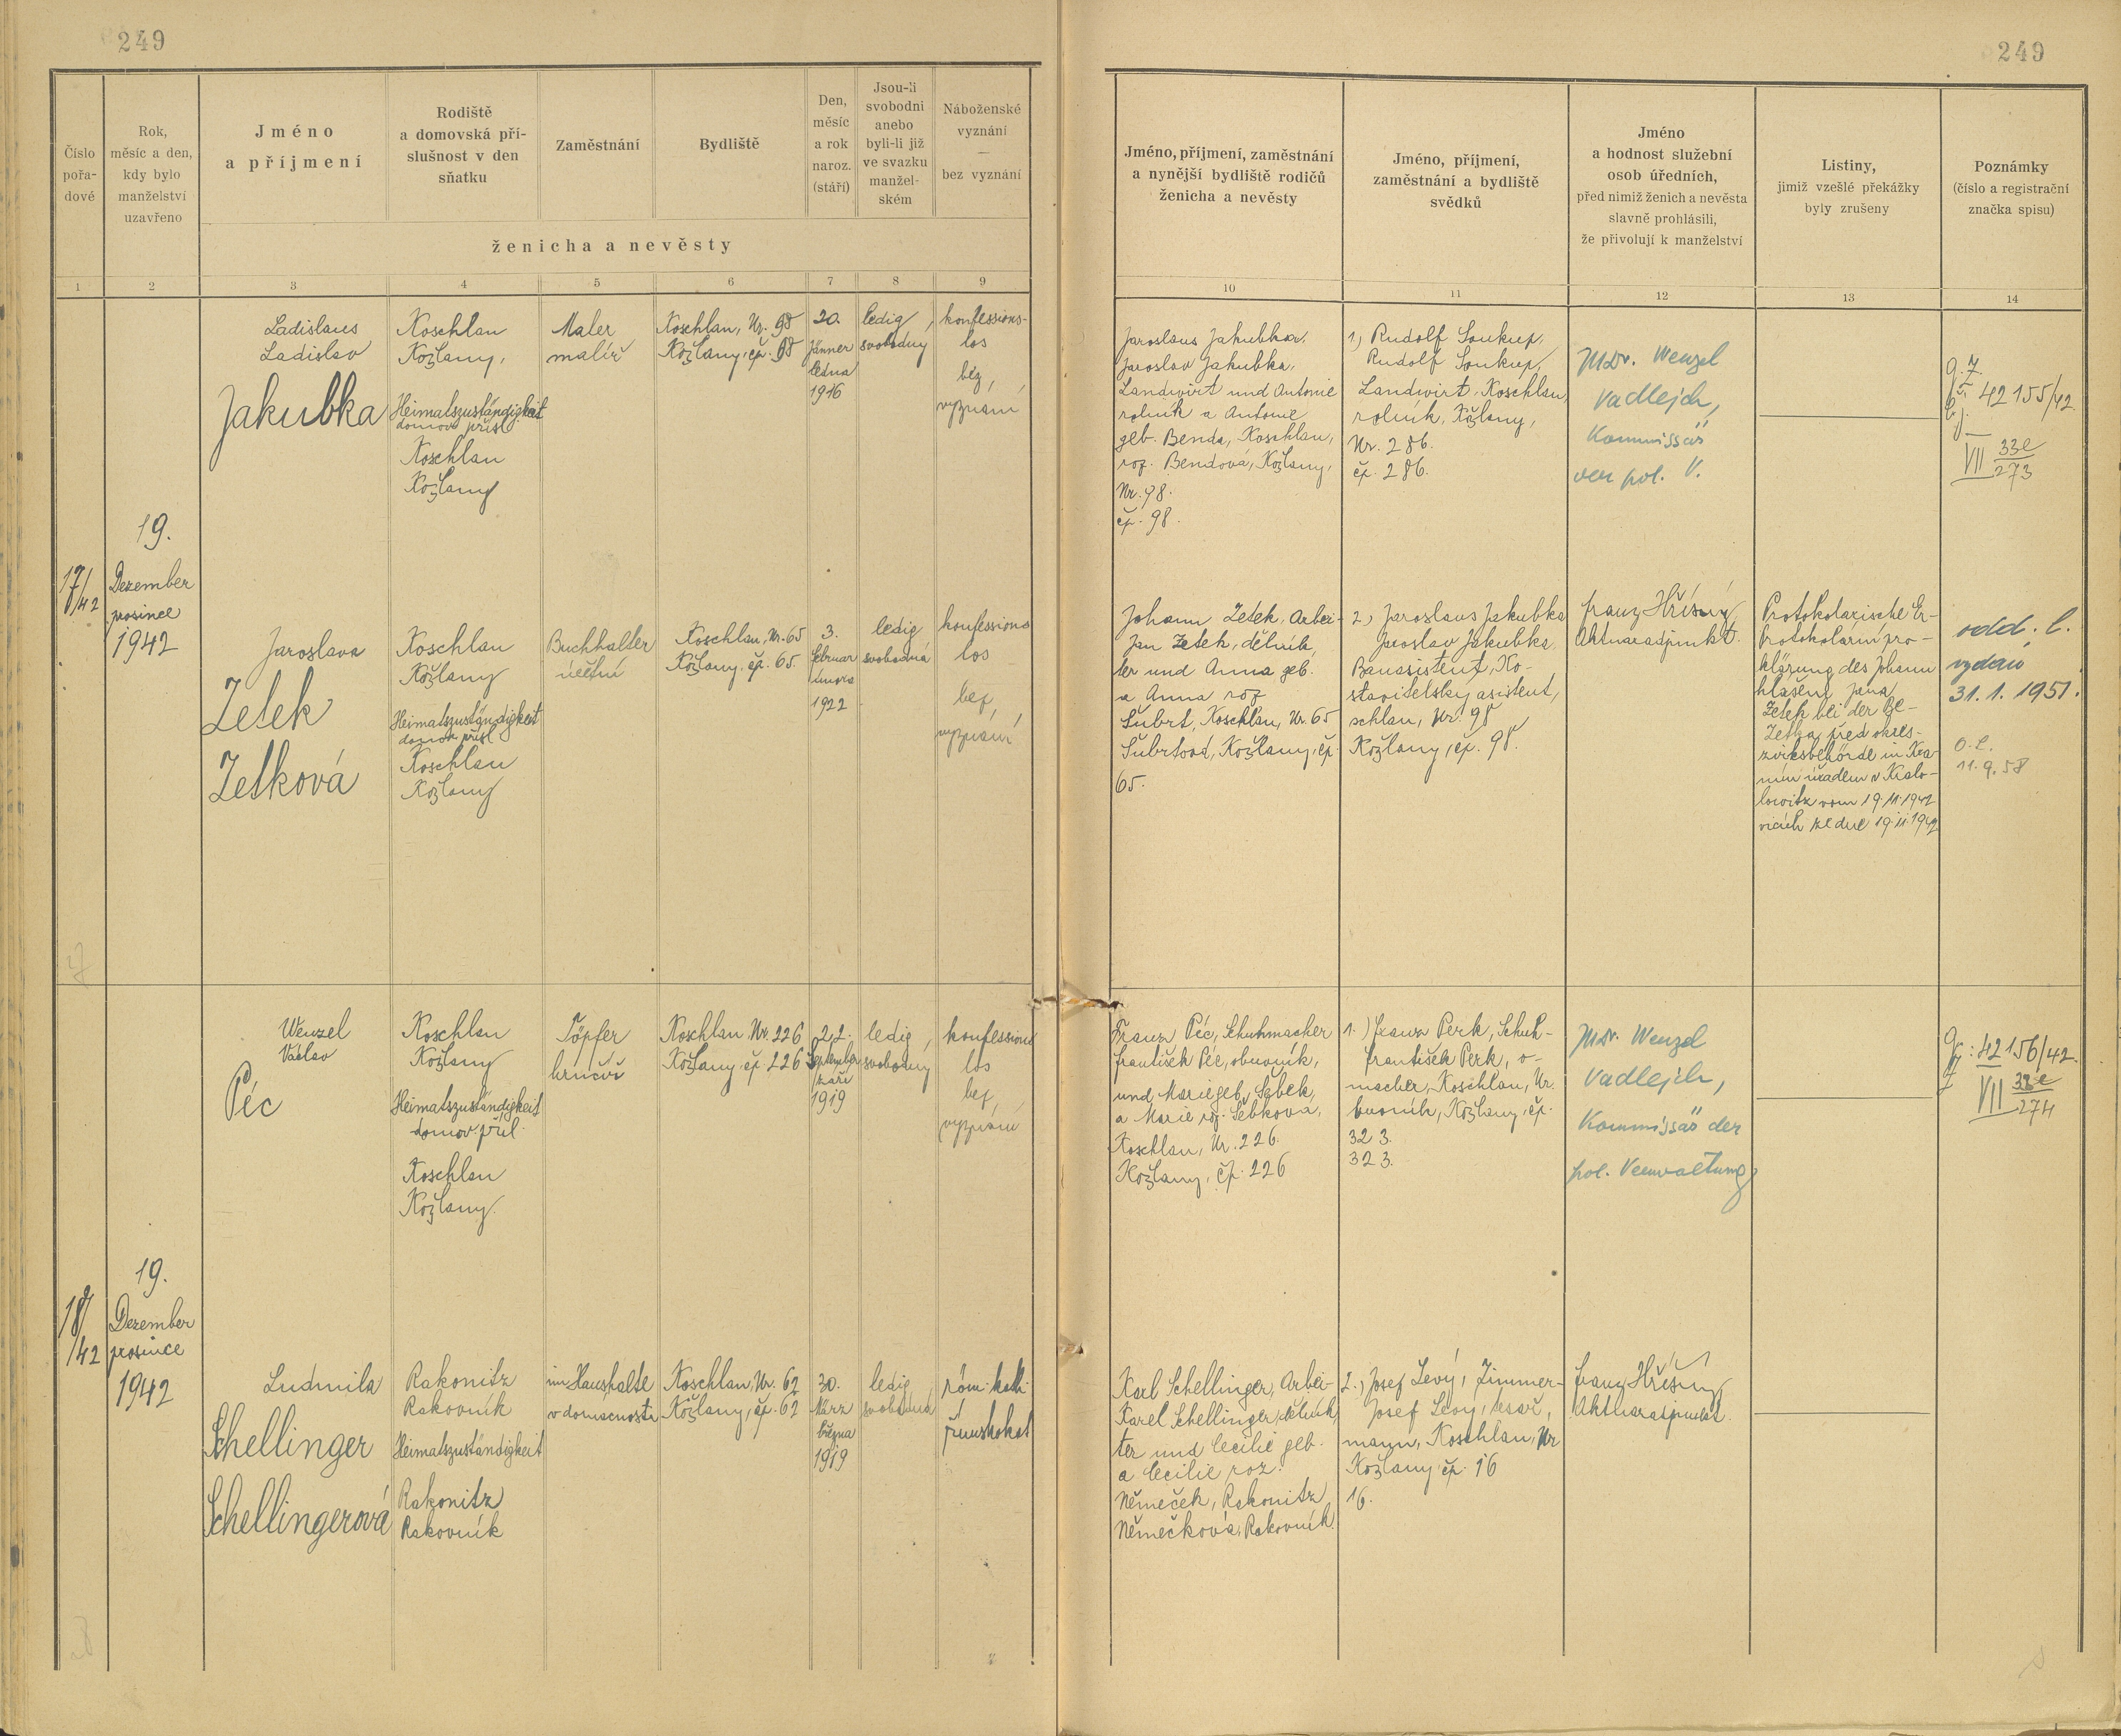 249
249
Číslo
pořa-
dové
Rok,
měsíc a den,
kdy bylo
manželství
uzavřeno
Jméno
a příjmení
Rodiště
a domovská pří-
slušnost v den
sňatku
Zaměstnání
Bydliště
Den,
měsíc
a rok
naroz.
(stáří)
Jsou-li
svobodni
anebo
byli-li již
ve svazku
manžel-
ském
Náboženské
vyznání
—
bez vyznání
ženicha a nevěsty
Jméno, příjmení, zaměstnání
a nynější bydliště rodičů
ženicha a nevěsty
Jméno, příjmení,
zaměstnání a bydliště
svědků
Jméno
a hodnost služební
osob úředních,
před nimiž ženich a nevěsta
slavně prohlásili,
že přivolují k manželství
Listiny,
jimiž vzešlé překážky
byly zrušeny
Poznámky
(číslo a registrační
značka spisu)
1 2 3 4 5 6 7 8 9 10 11 12 13 14
17/42
19.
Dezember
prosinec
1942
Ladislaus
Ladislav
Jakubka
Koschlan
Kožlany,
Heimatszuständigkeit
domov. přísl.
Koschlan
Kožlany
Maler
malíř
Koschlan, Nr. 98
Kožlany, čp. 98
20.
Jänner
ledna
1916
ledig,
svobodný
konfessions-
los
bez,
vyznání
Jaroslaus Jakubka,
Jaroslav Jakubka,
Landwirt und Antonie
rolník a Antonie
geb. Benda, Koschlan,
roz. Bendová, Kožlany,
Nr. 98.
čp. 98.
1.) Rudolf Soukup,
Rudolf Soukup,
Landwirt, Koschlan,
rolník, Kožlany,
Nr. 286.
čp. 286.
Wenzel
Vadlejch,
Kommissär
der pol. V.
42155/42
VII 33e/273
Jaroslava
Zetek
Zetková
Koschlan
Kožlany
Heimatszuständigkeit
domov. přísl.
Koschlan
Kožlany
Buchhalter
účetní
Koschlan, Nr. 65
Kožlany, čp. 65.
3.
Februar
února
1922
ledig
svobodná
konfessions
los
bez,
vyznání
Johann Zetek, Arbei-
Jan Zetek, dělník,
ter und Anna geb.
a Anna roz.
Šubrt, Koschlan, Nr. 65
Šubrtová, Kožlany, čp.
65.
2.) Jaroslaus Jakubka
Jaroslav Jakubka,
Bauasistent, Ko-
stavitelský asistent,
schlan, Nr. 98
Kožlany, čp. 98.
Franz Hříšný
Aktuaradjunkt.
Protokolarische Er-
Protokolární pro-
klärung des Johann
hlášení Jana
Zetek bei der Be-
Zetka před okres-
zirksbehörde in Kra-
ním úřadem v Kralo-
lowitz vom 19.11.1942
vicích ze dne 19.11.1942
odd. l.
vydán
31.1.1951.
O.L.
11.9.58
18/42
19.
Dezember
prosince
1942
Wenzel
Václav
Péc
Koschlan
Kožlany
Heimatszuständigkeit
domov. přísl.
Koschlan
Kožlany.
Töpfer
hrnčíř
Koschlan, Nr. 226
Kožlany čp. 226
22.
September
září
1919
ledig,
svobodný
konfessions
los
bez,
vyznání
Franz Péc, Schuhmacher
František Péc, obuvník,
und Marie geb. Sebek,
a Marie roz. Šebková,
Koschlan, Nr. 226.
Kožlany, čp. 226
1.) Franz Perk, Schuh-
František Perk, o-
macher, Koschlan, Nr.
buvník, Kožlany, čp.
323.
323.
Wenzel
Vadlejch,
Kommissär der
pol. Verwaltung
42156/42
VII 33e/274
Ludmila
Schellinger
Schellingerová
Rakonitz
Rakovník
Heimatszuständigkeit
Rakonitz
Rakovník
im Haushalte
v domácnosti
Koschlan, Nr. 62
Kožlany, čp. 62
30.
März
března
1919
ledig
svobodná
röm. kath.
římskokat
Karl Schellinger, Arbei-
Karel Schellinger, dělník,
ter und Cecilie geb.
a Cecilie roz.
Němeček, Rakonitz
Němečková, Rakovník.
2.) Josef Levý, Zimmer-
Josef Levý, tesař,
mann, Koschlan, Nr
Kožlany čp. 16
16.
Franz Hříšný
Aktuaradjunkt.